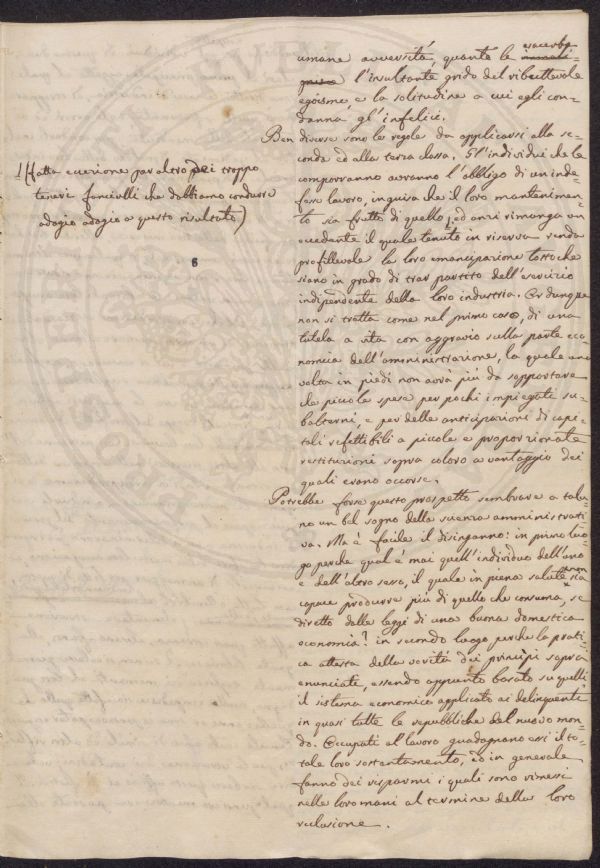 umane avversità, quanto le esacerba
l'insultante grido del ributtevole
egoismo e la solitudine a cui egli con-
danna gl'infelici.
Ben diverse sono le regole da applicarsi alla se-
conda ed alla terza classe. Gl'individui che le
comporranno avranno l'obbligo di un inde-
fesso lavoro, in guisa che il loro mantenimen-
to sia frutto di quello, ed anzi rimanga un
eccedente il quale tenuto in riserva renda
profittevole la loro emancipazione tostoche
siano in grado di trar partito dell'esercizio
indipendente della loro industria. Or dunque
non si tratta come nel primo caso, di una
tutela a vita con aggravio sulla parte eco-
nomica dell'amministrazione, la quale una
volta in piedi non avrà più da sopportare
che piccole spese per pochi impiegati su-
balterni, e per delle anticipazioni di capi-
tali refettibili a piccole e proporzionate
restituzioni sopra coloro a vantaggio dei
quali erano occorse.
Potrebbe forse questo prospetto sembrare a talu-
no un bel sogno della scienza amministrati-
va. Ma è facile il disinganno: in primo luo-
go perche qual è mai quell'individuo dell'uno
e dell'altro sesso, il quale in piena salute non sia
capace produrre più di quello che consuma, se
diretto dalle leggi di una buona domestica
economia? in secondo luogo perche la prati-
ca attesta della verità dei principi sopra
enunciati, essendo appunto basato su quelli
il sistema economico applicato ai delinquenti
in quasi tutte le repubbliche del nuovo mon-
do. Occupati al lavoro guadagnano essi il to-
tale loro sostentamento, ed in generale
fanno dei risparmi i quali sono rimessi
nelle loro mani al termine della loro
reclusione.
1/ (fatta eccezione per altro dei troppo
teneri fanciulli che dobbiamo condurre
adagio adagio a questo risultato)
6